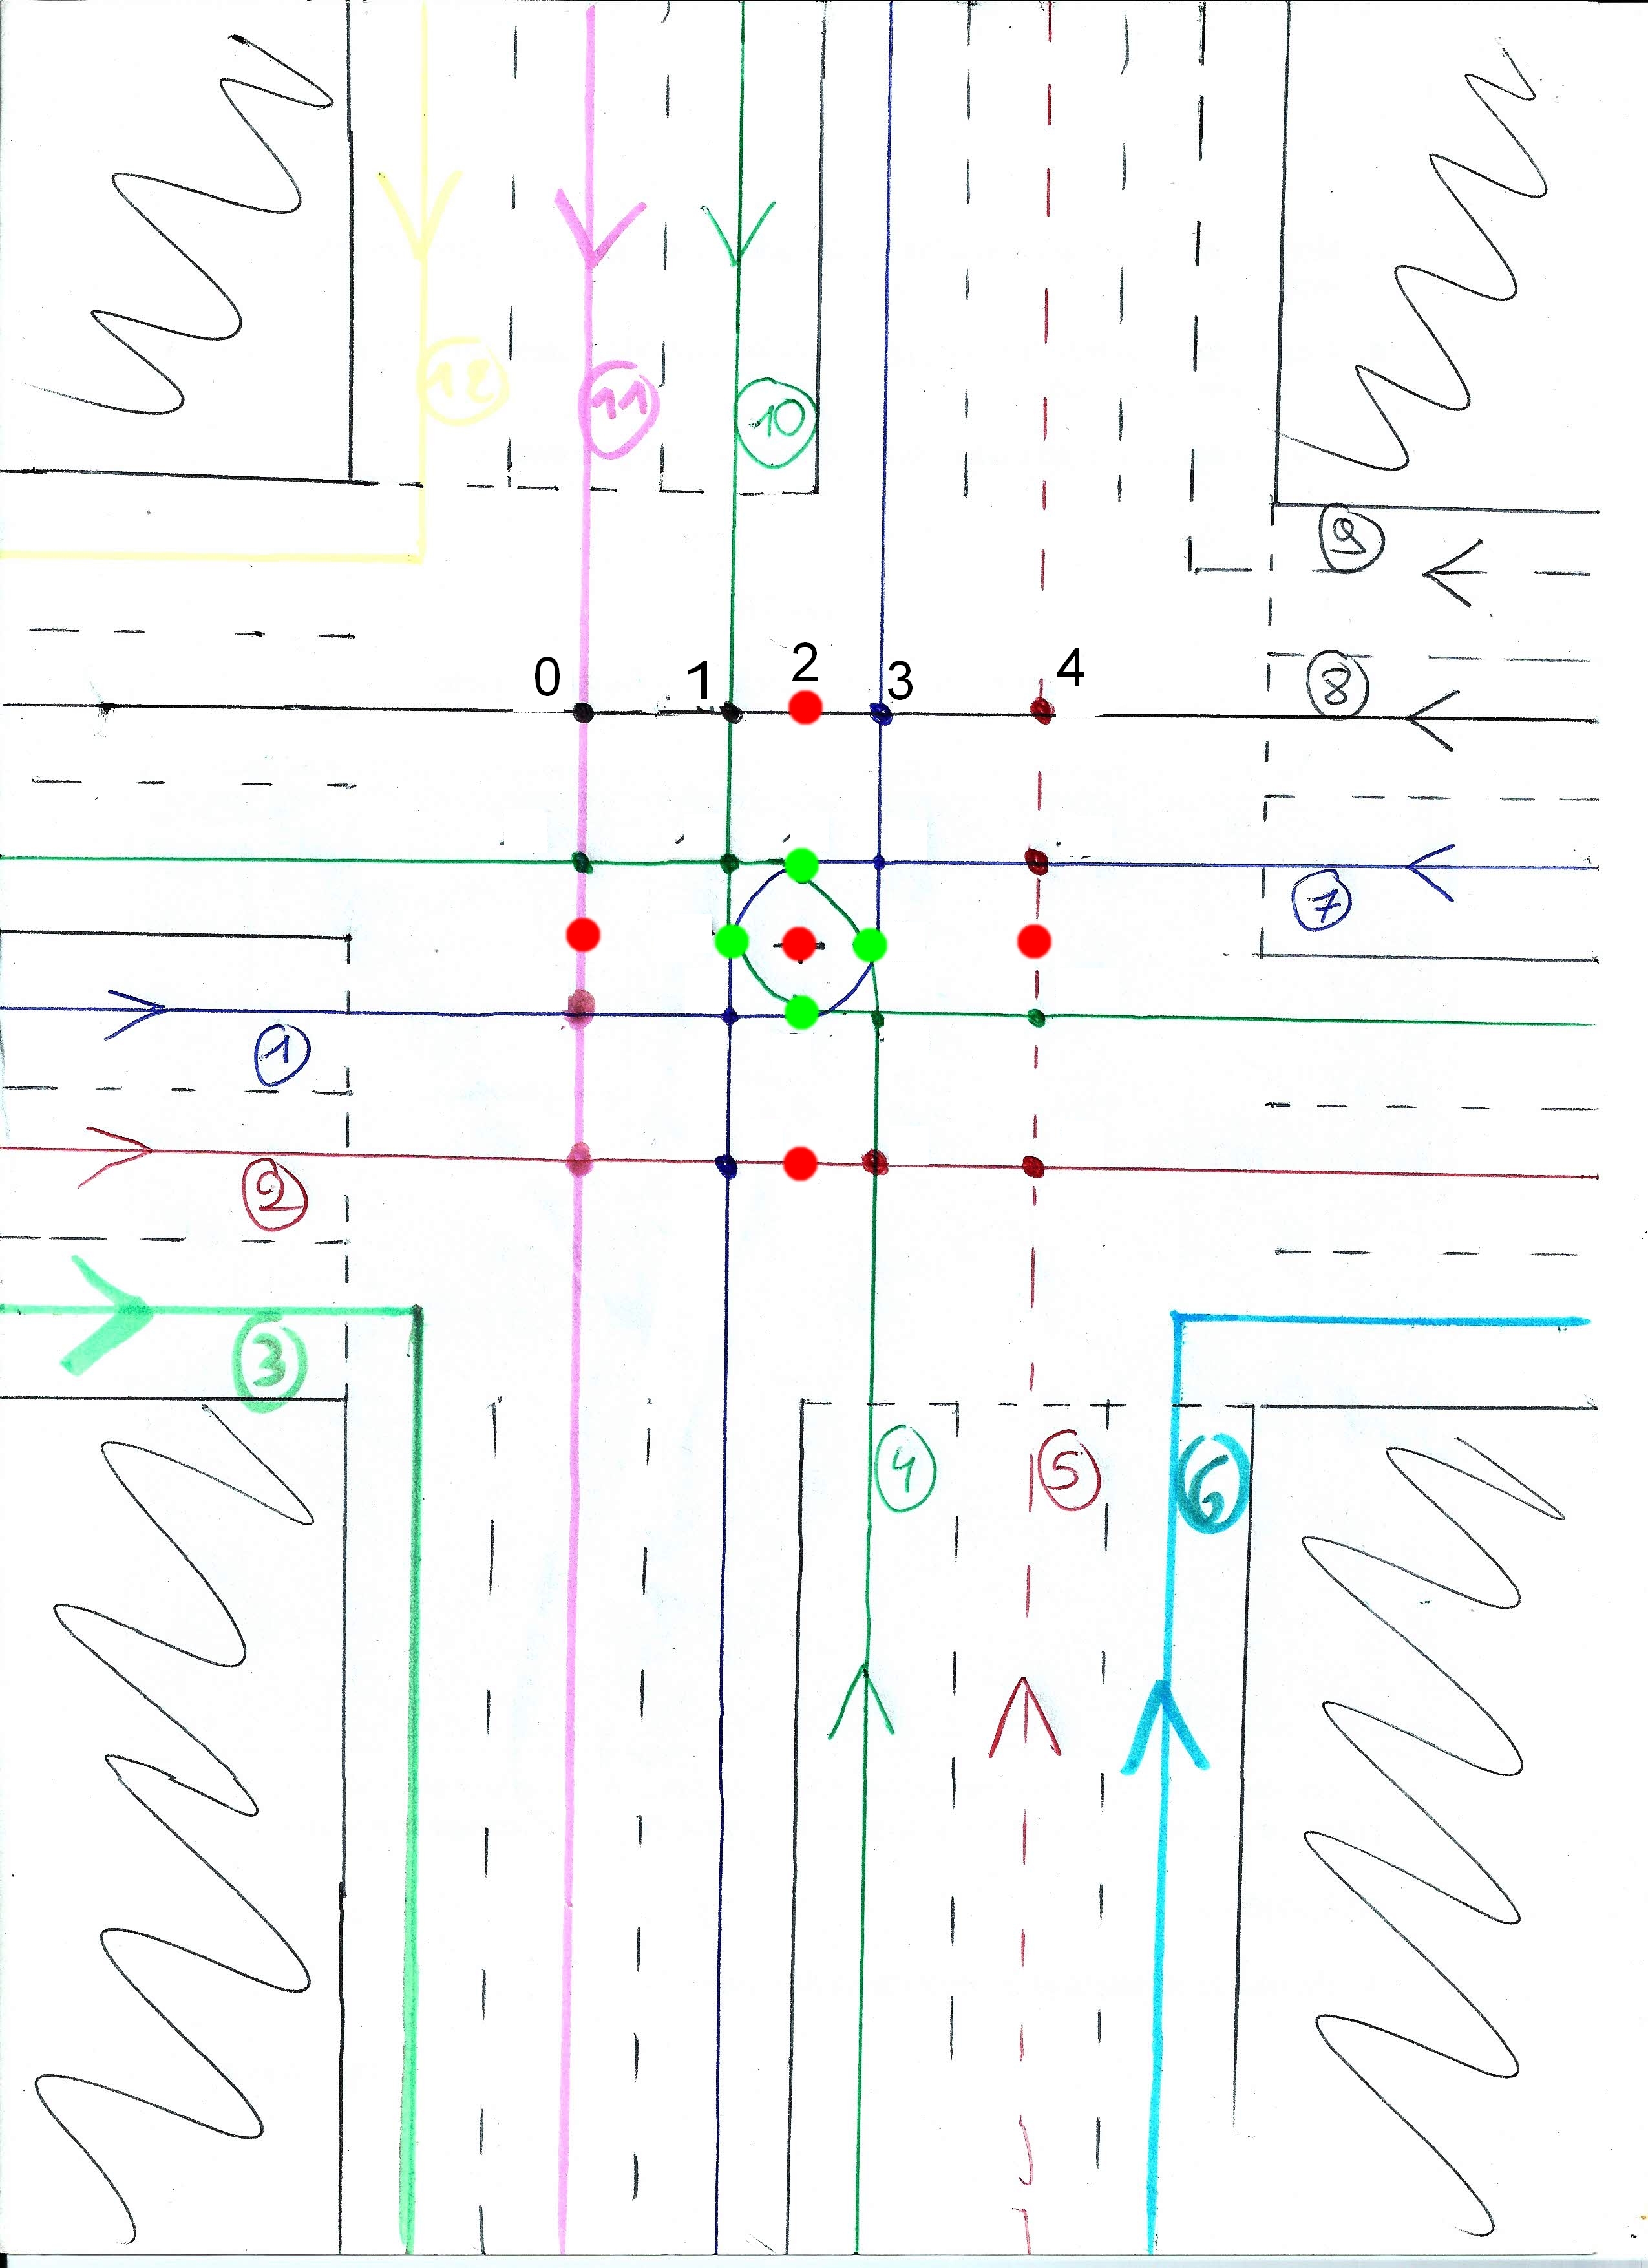 12
11
10
9
0 1 2 3 4
8
7
1
2
3
4
5
6